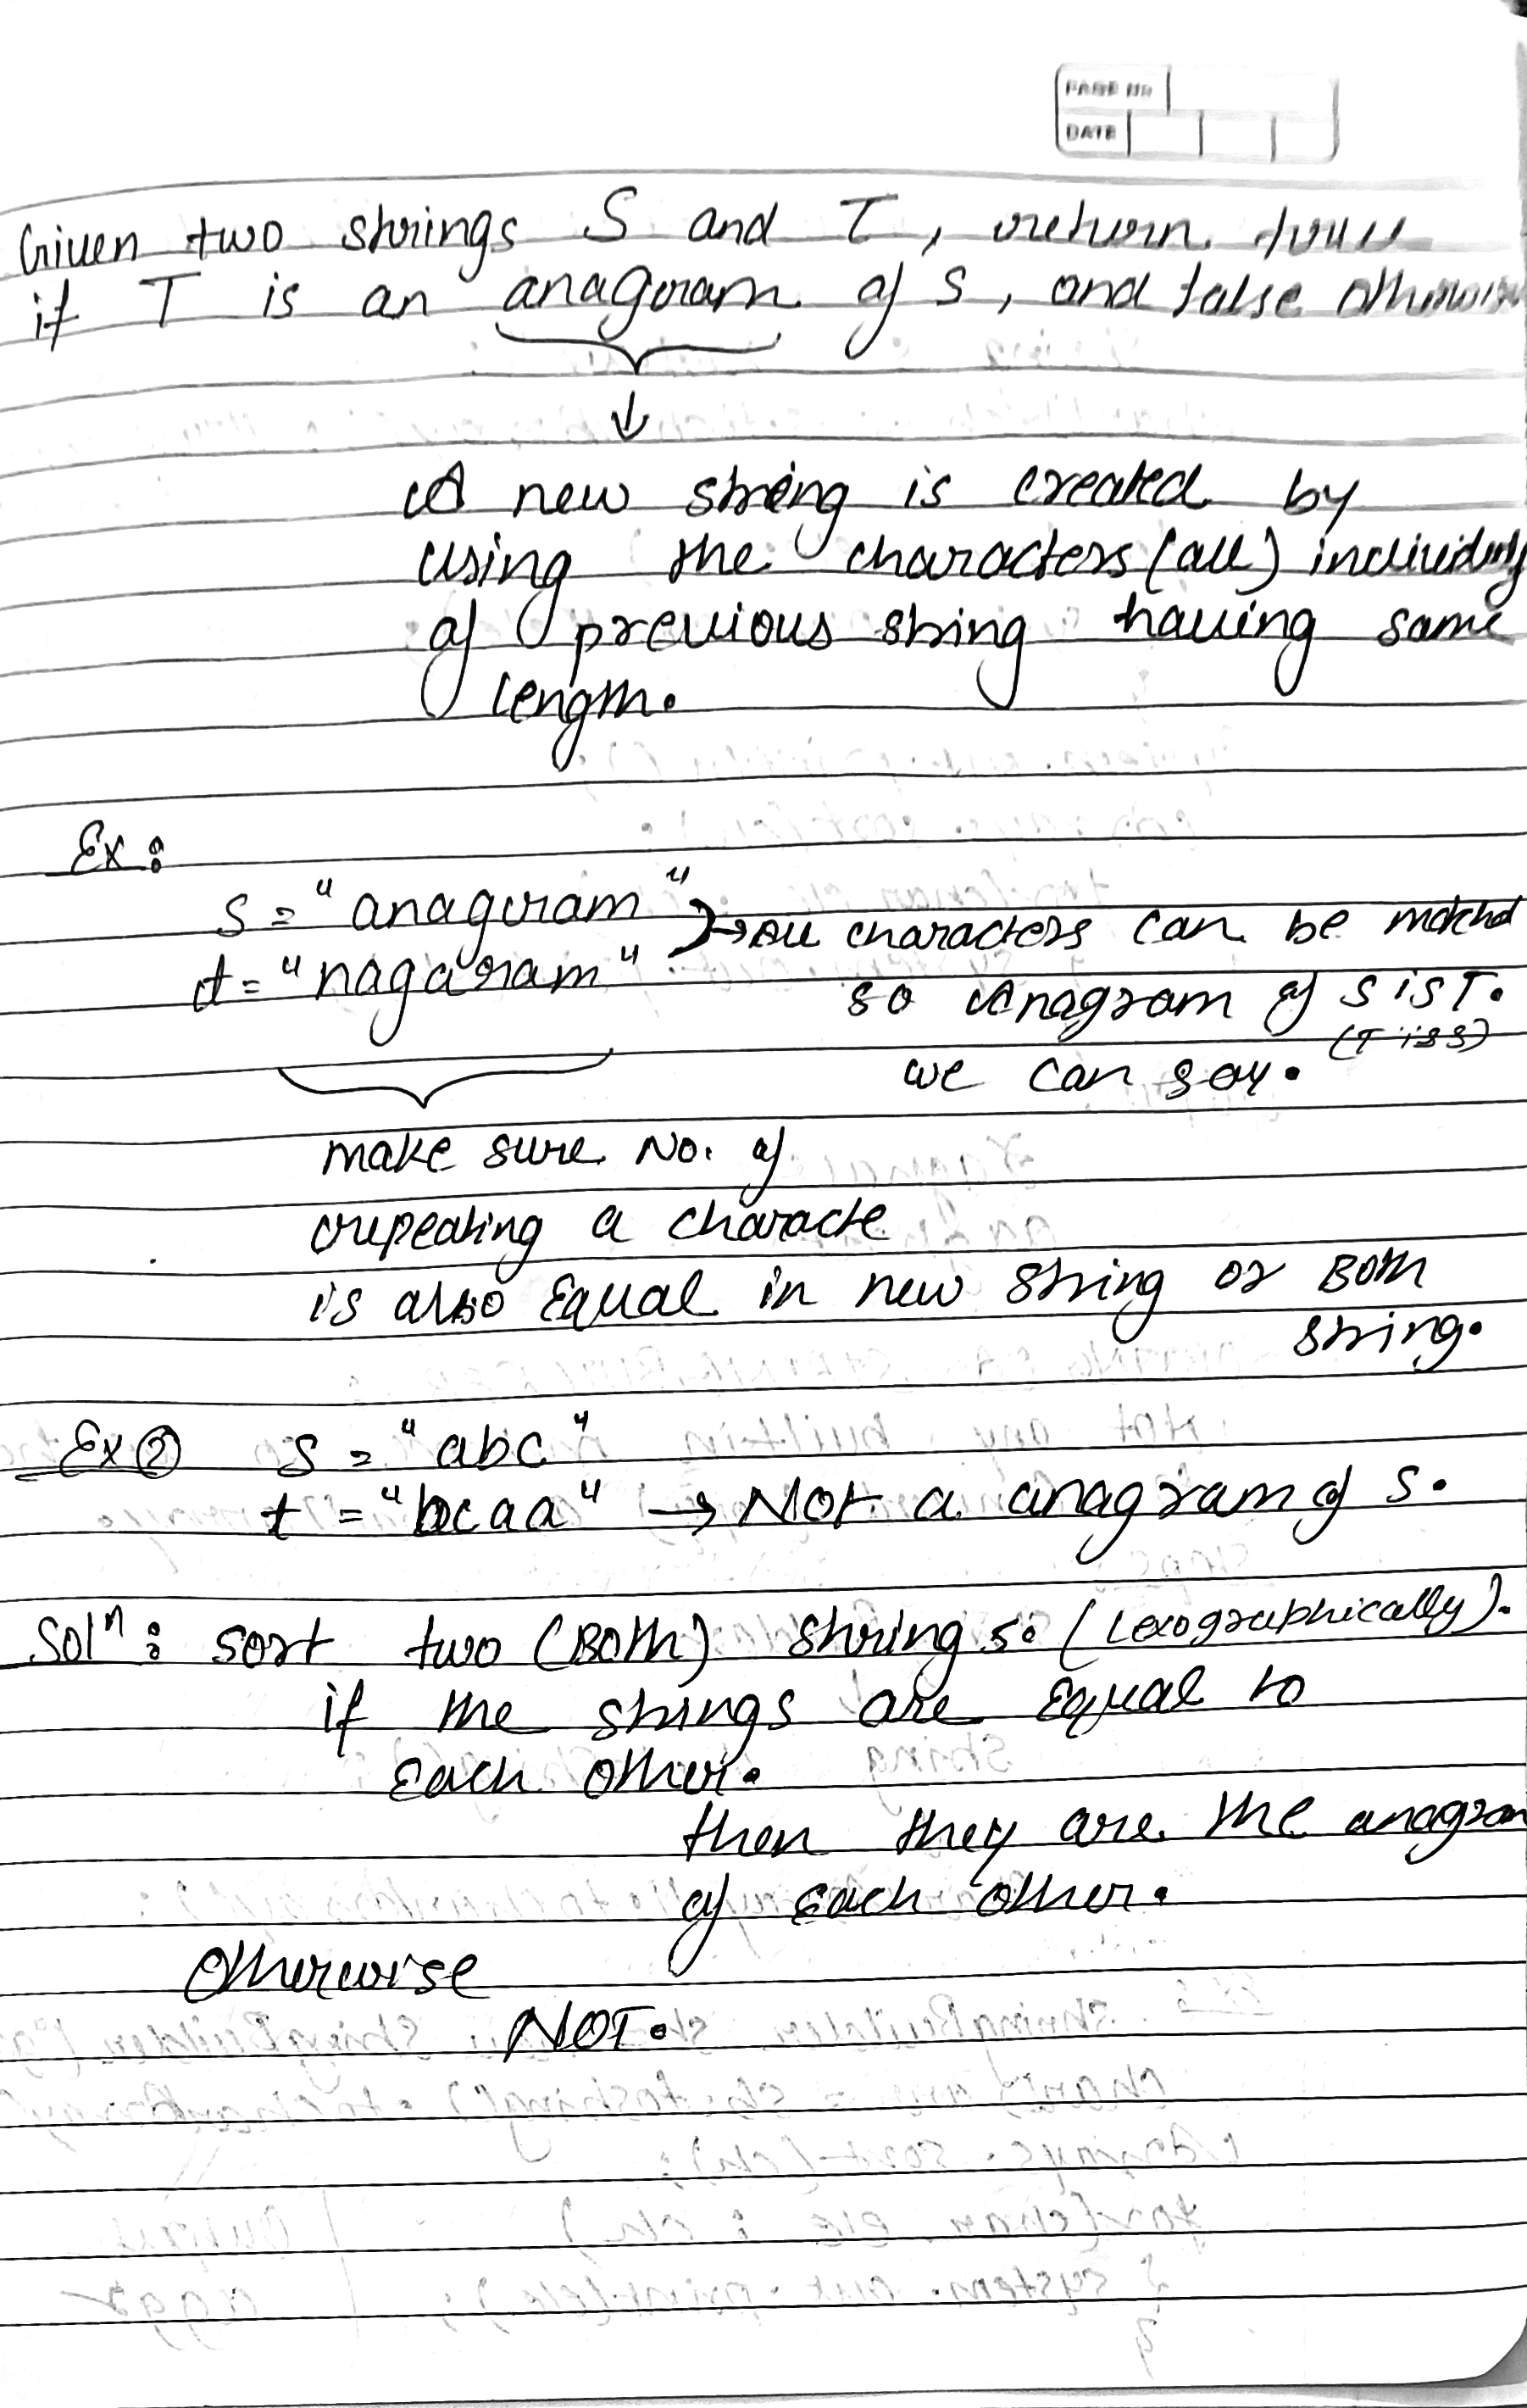 PAGE NO
DATE
Given two strings S and T, return true
if T is an anagram of S, and false otherwise
A new string is created by
using the characters (all) individualy
of previous string having same
length.
Ex:
S = "anagram"
t = "nagaram"
→ All characters can be matched
so Anagram of S is T.
(T is S)
we can say.
make sure No. of
repeating a characte
is also Equal in new string or Both
string.
Ex ② S = "abc"
t = "bcaa" → Not a anagram of S.
Solⁿ: sort two (Both) strings: (Lexographically).
if the strings are Equal to
Each other.
then they are the anagram
of each other.
Otherwise
NOT.